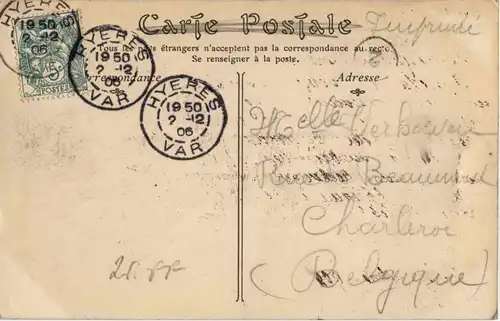 Carte Postale
Imprimé
Tous les pays étrangers n'acceptent pas la correspondance au recto.
Se renseigner à la poste.
Correspondance
Adresse
HYERES
19 50
2-12
06
VAR
HYERES
19 50
2-12
06
VAR
HYERES
19 50
2-12
06
5
POSTES
Melle
Rue de Beaumont
Charleroi
(Belgique)